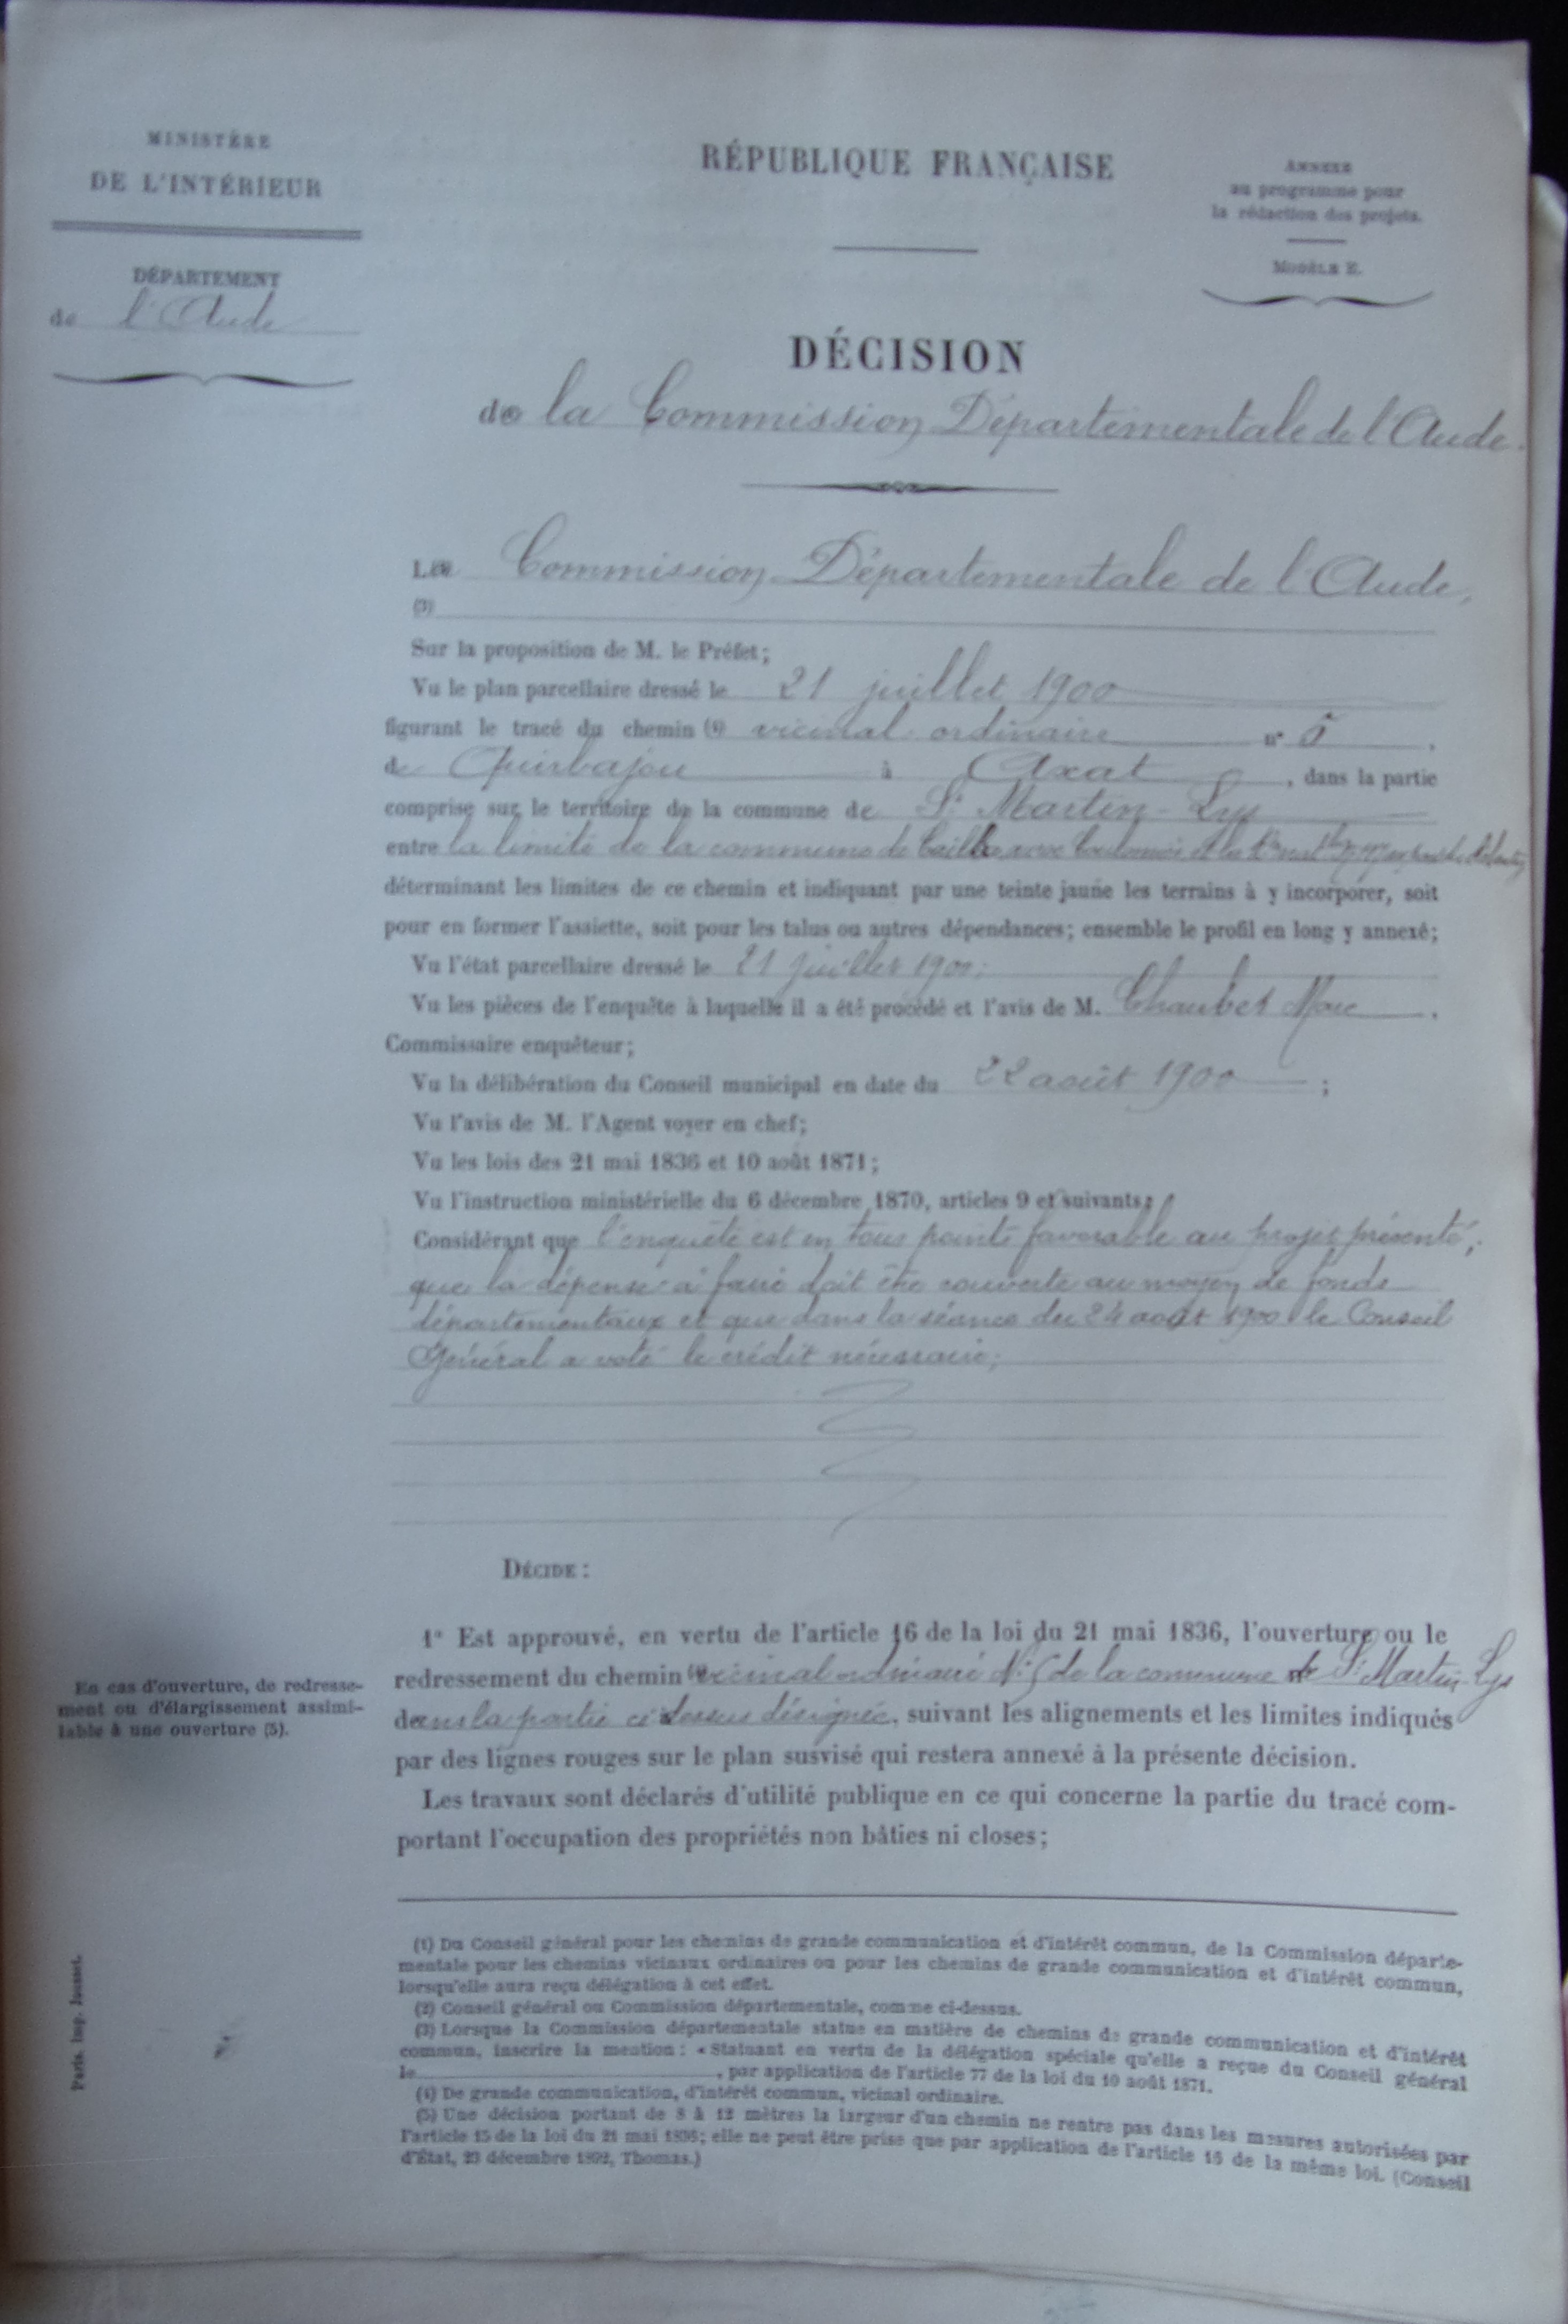 MINISTÈRE
DE L'INTÉRIEUR
DÉPARTEMENT
de l'Aude
RÉPUBLIQUE FRANÇAISE
ANNEXE
au programme pour
la rédaction des projets.
MODÈLE E.
DÉCISION
de la Commission Départementale de l'Aude.
La Commission Départementale de l'Aude,
(3)
Sur la proposition de M. le Préfet;
Vu le plan parcellaire dressé le 21 juillet 1900
figurant le tracé du chemin (4) vicinal ordinaire n° 5,
de Quirbajou à Axat, dans la partie
comprise sur le territoire de la commune de St Martin-Lys
entre la limite de la commune de
déterminant les limites de ce chemin et indiquant par une teinte jaune les terrains à y incorporer, soit
pour en former l'assiette, soit pour les talus ou autres dépendances; ensemble le profil en long y annexé;
Vu l'état parcellaire dressé le 21 juillet 1900;
Vu les pièces de l'enquête à laquelle il a été procédé et l'avis de M. Chaubet Marc.
Commissaire enquêteur;
Vu la délibération du Conseil municipal en date du 22 août 1900;
Vu l'avis de M. l'Agent voyer en chef;
Vu les lois des 21 mai 1836 et 10 août 1871;
Vu l'instruction ministérielle du 6 décembre 1870, articles 9 et suivants;
Considérant que l'enquête est en tous points favorable au projet présenté;
que la dépense à faire doit être couverte au moyen de fonds
départementaux et que dans la séance du 24 août 1900 le Conseil
Général a voté le crédit nécessaire;
DÉCIDE :
1° Est approuvé, en vertu de l'article 16 de la loi du 21 mai 1836, l'ouverture ou le
redressement du chemin (4) vicinal ordinaire N° 5 de la commune de St Martin-Lys
dans la partie ci dessus désignée, suivant les alignements et les limites indiqués
par des lignes rouges sur le plan susvisé qui restera annexé à la présente décision.
Les travaux sont déclarés d'utilité publique en ce qui concerne la partie du tracé com-
portant l'occupation des propriétés non bâties ni closes;
En cas d'ouverture, de redresse-
ment ou d'élargissement assimi-
lable à une ouverture (5).
(1) Du Conseil général pour les chemins de grande communication et d'intérêt commun, de la Commission départe-
mentale pour les chemins vicinaux ordinaires ou pour les chemins de grande communication et d'intérêt commun,
lorsqu'elle aura reçu délégation à cet effet.
(2) Conseil général ou Commission départementale, comme ci-dessus.
(3) Lorsque la Commission départementale statue en matière de chemins de grande communication et d'intérêt
commun, inscrire la mention : « Statuant en vertu de la délégation spéciale qu'elle a reçue du Conseil général
le , par application de l'article 77 de la loi du 10 août 1871.
(4) De grande communication, d'intérêt commun, vicinal ordinaire.
(5) Une décision portant de 8 à 12 mètres la largeur d'un chemin ne rentre pas dans les mesures autorisées par
l'article 15 de la loi du 21 mai 1836; elle ne peut être prise que par application de l'article 16 de la même loi. (Conseil
d'État, 23 décembre 1892, Thomas.)
Paris. Imp. Jousset.